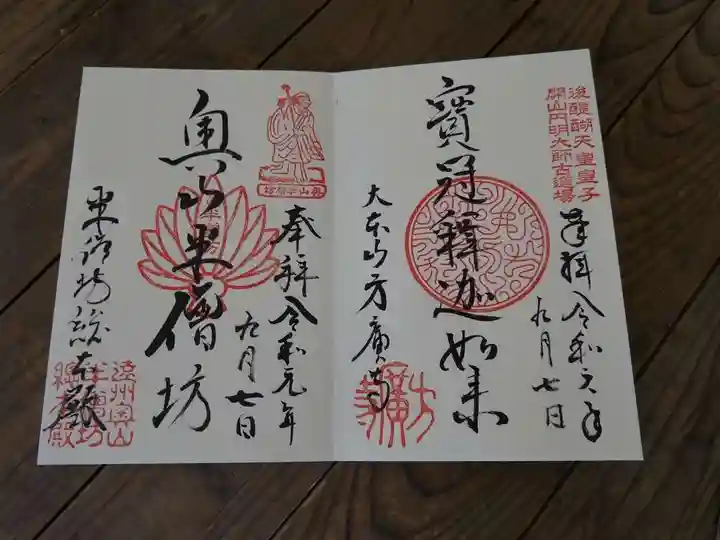 後醍醐天皇皇子
開山円明大師古道場
奉拝 令和元年
九月七日
寶冠釋迦如来
大本山方廣寺
奉拝 令和元年
九月七日
奥山半僧坊
半僧坊総本殿
遠州奥山
半僧坊
総本殿